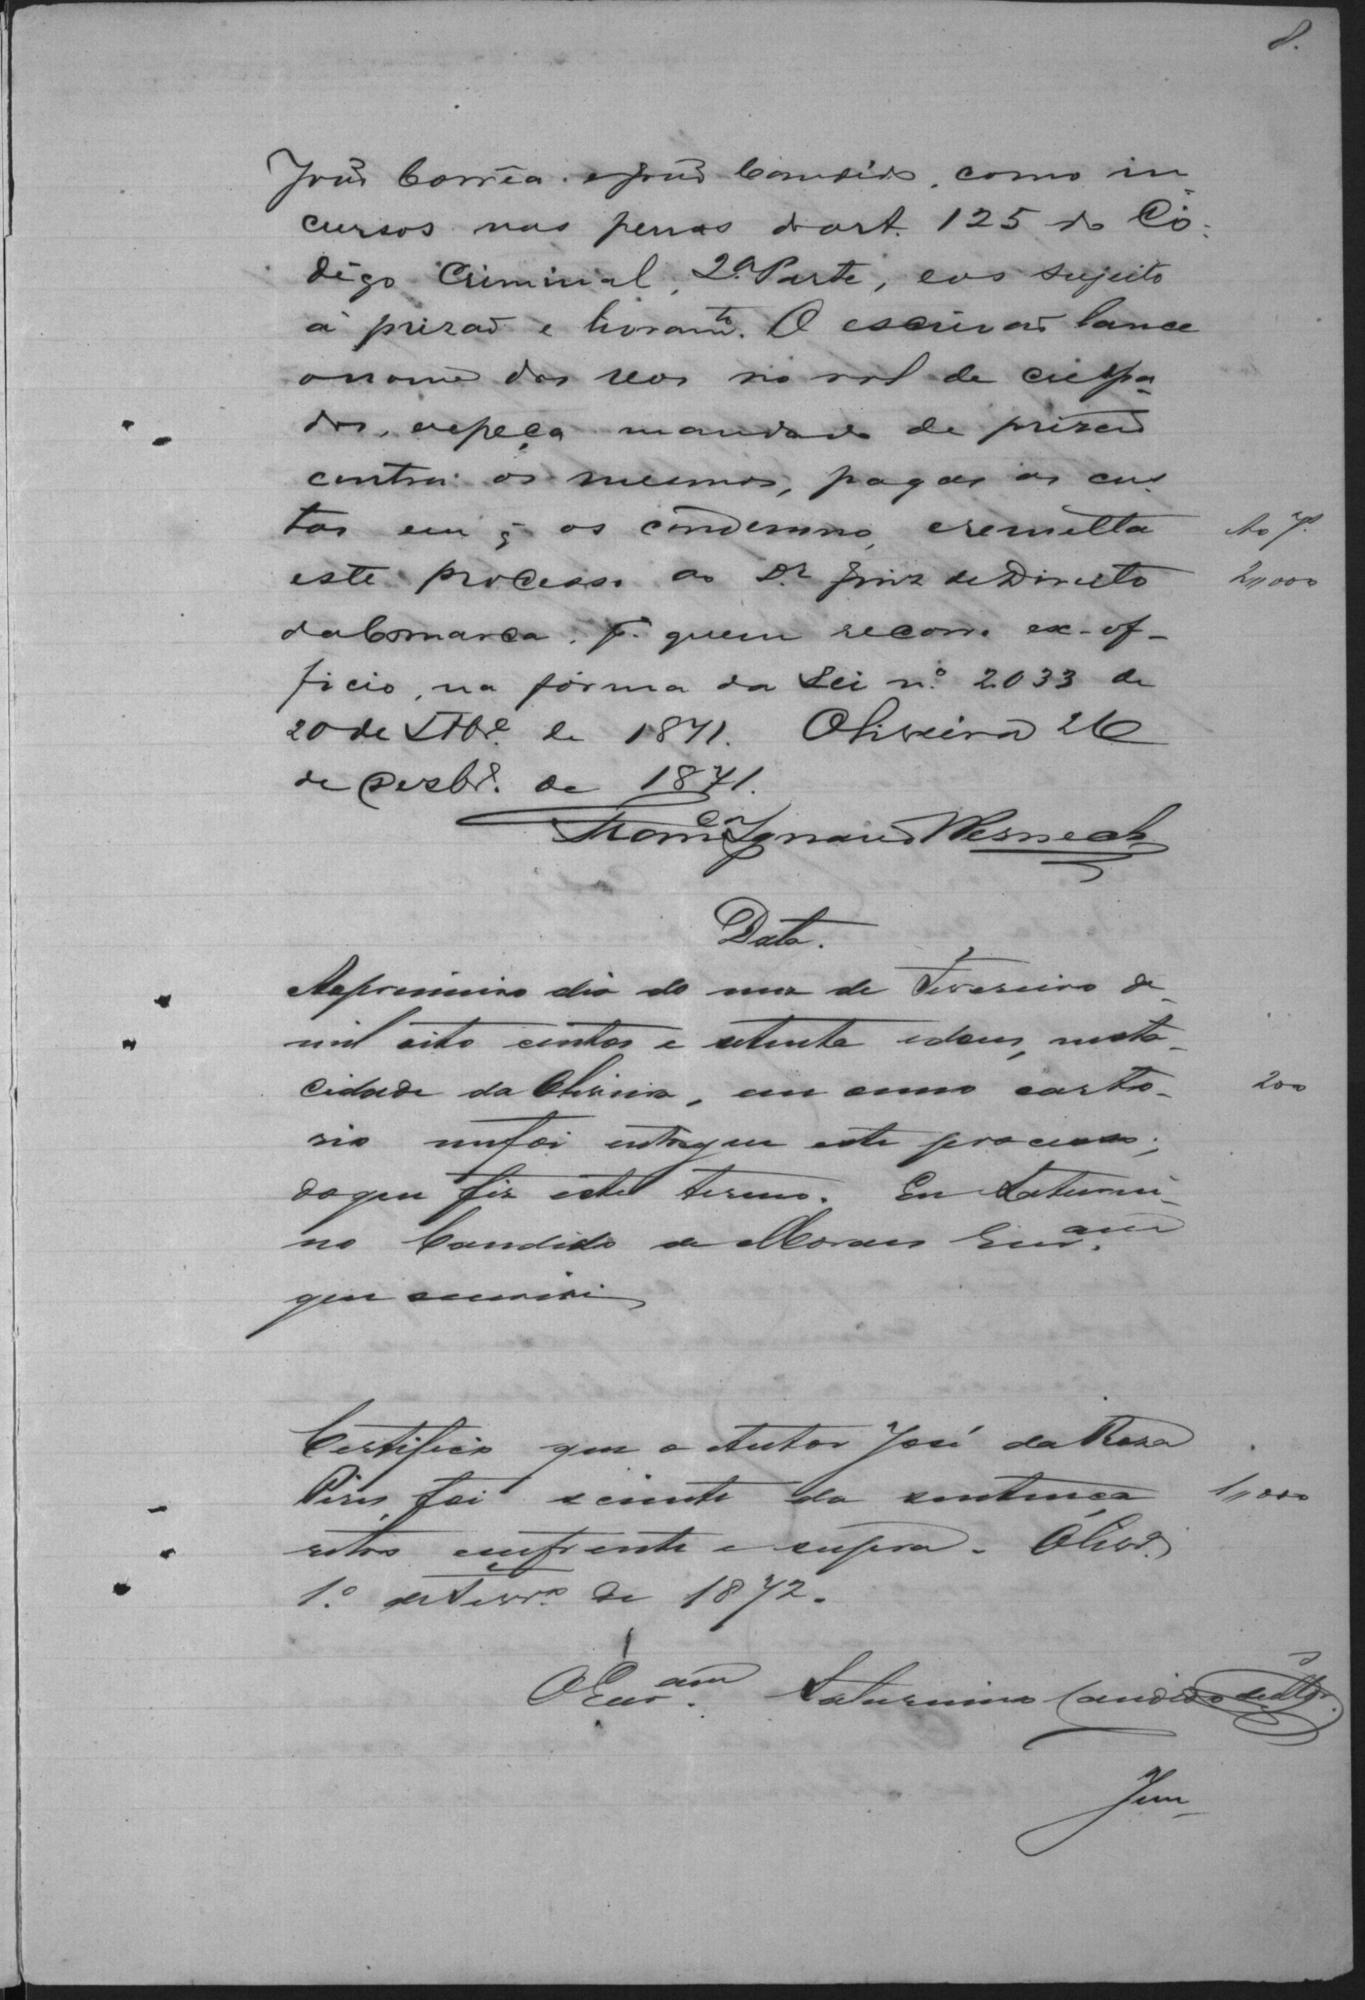 8.
João Corrêa e João Candido, como in
cursos nas penas do art. 125 do Co-
digo Criminal, 2ª Parte, e os sujeito
á prizão e livramto. O escrivão lance
o nome dos reos no rol de culpa
dos, expeça mandado de prizão
contra os mesmos, pagas as cus
tas em q os condemno, e remetta
Ao J.
este processo ao Dr Juiz de Direito
2,,000
da Comarca, pa quem recorro ex-of-
ficio, na fórma da Lei nº 2033 de
20 de 7tbro de 1871. Oliveira 26
de Dezbro de 1871.
Ignacio Werneck
Data.
Ao primeiro dia do mez de Fevereiro de
mil oito centos e setenta e dous, nesta
cidade da Oliveira, em meu carto-
200
rio me foi entregue este processo;
do que fiz este termo. Eu Saturni-
no Candido de Moraes Escram
que escrevi
Certifico que o Autor José da Roza
Pires, foi sciente da sentença
1,,000
retro emfrente e supra. Olivra
1.º de Fevro de 1872.
O Escram Saturnino Candido de
Jun